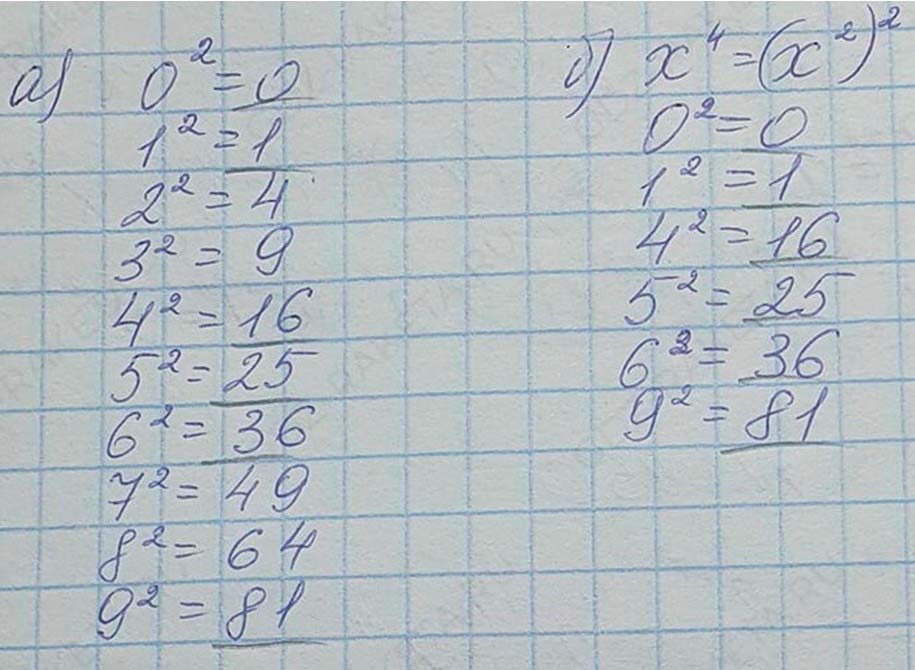 а) 0² = 0
1² = 1
2² = 4
3² = 9
4² = 16
5² = 25
6² = 36
7² = 49
8² = 64
9² = 81
б) x⁴ = (x²)²
0² = 0
1² = 1
4² = 16
5² = 25
6² = 36
9² = 81